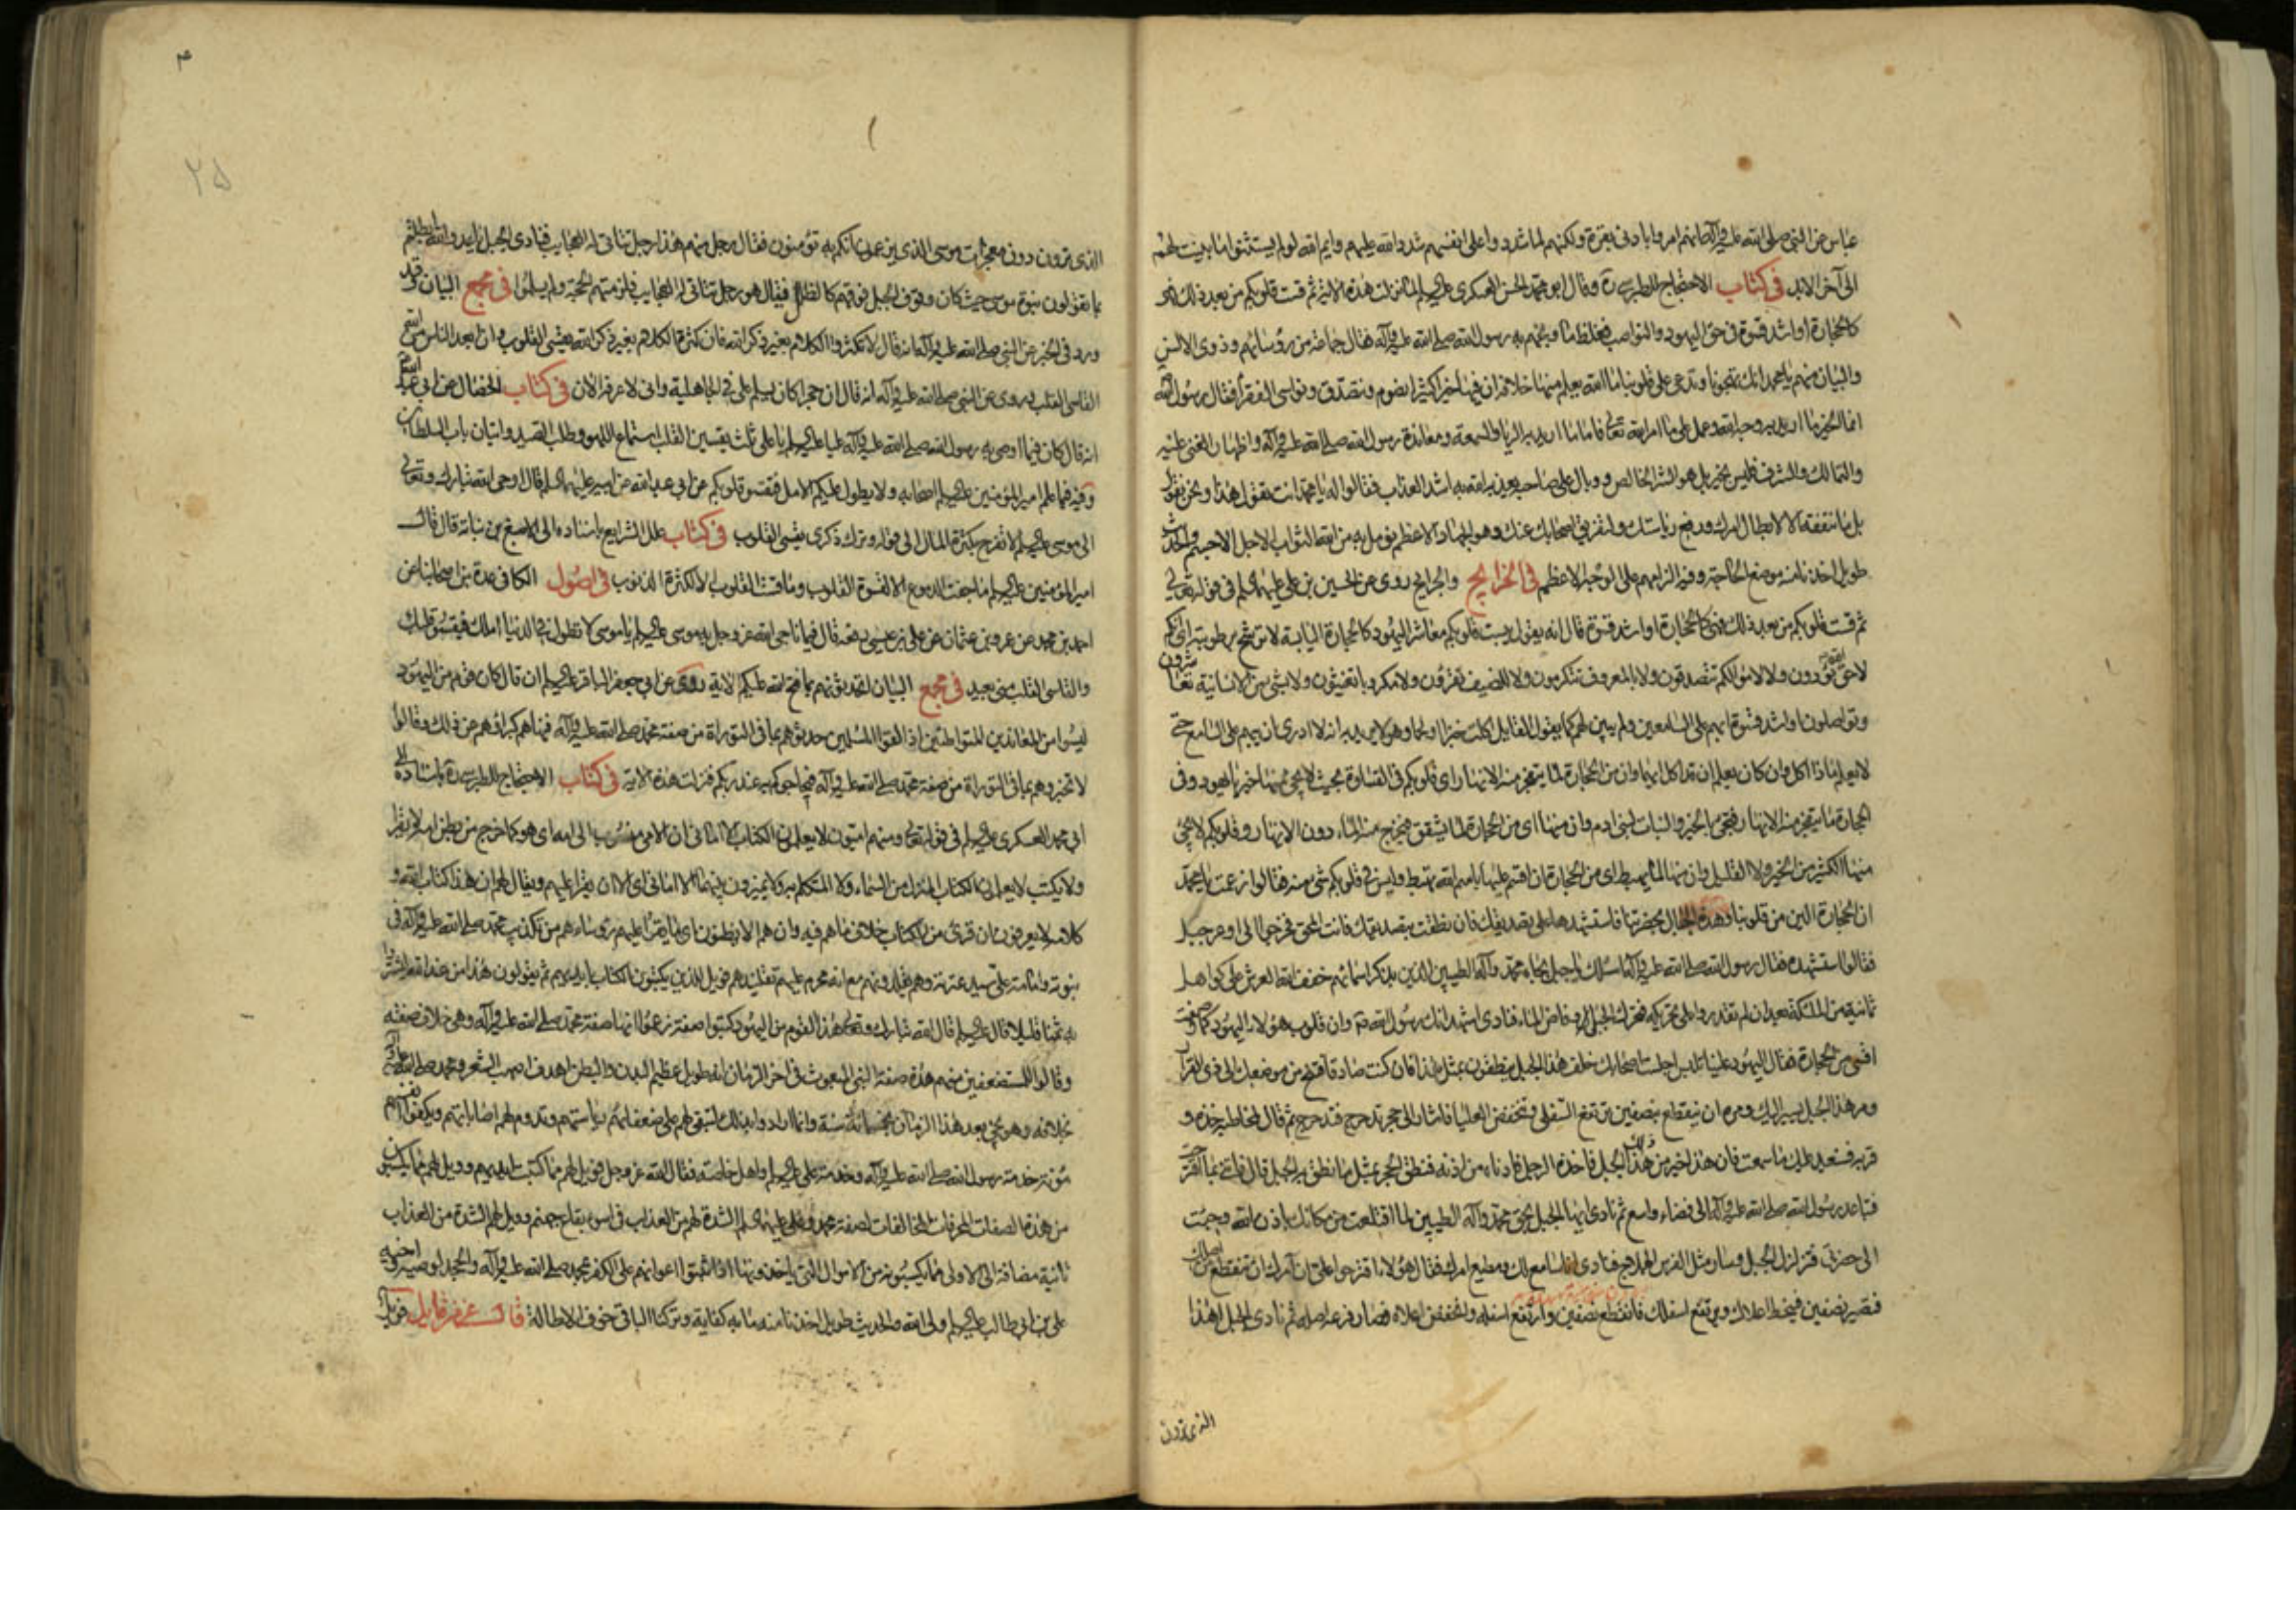 عباس عن النبي صلى الله عليه وآله انهم امروا بادنى بقرة ولكنهم لما شددوا على انفسهم شدد الله عليهم وايم الله لو لم يستثنوا ما بينت لهم
الى آخر الابد في كتاب الاحتجاج للطبرسي ره وقال ابو محمد الحسن العسكري عليه السلم لما نزلت هذه الاية ثم قست قلوبكم من بعد ذلك فهي
كالحجارة او اشد قسوة في حق اليهود والنواصب فغلظ ما وبخهم به رسول الله صلى الله عليه وآله فقال جماعة من رؤسائهم وذوى الالسن
والبيان منهم يا محمد انك تهجونا وتدعى على قلوبنا ما الله يعلم منها خلافه ان فيها خيرا كثيرا نصوم ونتصدق ونواسى الفقرأ فقال رسول الله
انما الخير ما اريد به وجه الله وعمل على ما امر الله تعالى فاما ما اريد به الريا والسمعة ومعاندة رسول الله صلى الله عليه وآله واظهار الغنى عليه
والتمالك والشرف فليس بخير بل هو الشر الخالص ووبال على صاحبه يعذبه الله به اشد العذاب فقالوا له يا محمد انت تقول هذا ونحن نقول
بل ما ننفقه الا لابطال امرك ودفع رياستك ولتفريق اصحابك عنك وهو الجهاد الاعظم نؤمل به من الله الثواب الاجل الاجسم والحديث
طويل اخذنا منه موضع الحاجة وفيه الزامهم على الوجه الاعظم في الخرايج والجرايح روى عن الحسين بن على عليهما السلم في قوله تعالى
ثم قست قلوبكم من بعد ذلك فهي كالحجارة او اشد قسوة قال انه يقول يبست قلوبكم معاشر اليهود كالحجارة اليابسة لا ترشح برطوبة اى انكم
لا حق الله تؤدون ولا لاموالكم تتصدقون ولا بالمعروف تتكرمون ولا للضيف تقرؤن ولا مكروبا تغيثون ولا بشئ من الانسانية تعاشرون
وتواصلون او اشد قسوة ابهم على السامعين ولم يبين لهم كما يقول القايل اكلت خبزا او لحما وهو لا يريد به انه لا ادرى ان يبهم على السامع حتى
لا يعلم ماذا اكل وان كان يعلم ان قد اكل ايهما وان من الحجارة لما يتفجر منه الانهار اى قلوبكم في القساوة بحيث لا يجئ منها خير يا يهود وفي
الحجارة ما يتفجر منه الانهار فتجئ بالخير والنبات لبنى ادم وان منها اى من الحجارة لما يشقق فيخرج منه الماء دون الانهار وقلوبكم لا يجئ
منها الكثير من الخير ولا القليل وان منها لما يهبط اى من الحجارة ان اقسم عليها باسم الله تهبط وليس في قلوبكم شئ منه فقالوا زعمت يا محمد
ان الحجارة الين من قلوبنا وهذه الجبال بحضرتنا فاستشهدها على تصديقك فان نطقت بتصديقك فانت المحق فخرجوا الى اوعر جبل
فقالوا استشهده فقال رسول الله صلى الله عليه وآله اسئلك يا جبل بجاه محمد وآله الطيبين الذين بذكر اسمائهم خفف الله العرش على كواهل
ثمانية من الملئكة بعد ان لم تقدروا على تحريكه فتحرك الجبل وفاض الماء فنادى اشهد انك رسول الله وان قلوب هؤلاء اليهود كما وصفت
اقسى من الحجارة فقال اليهود علينا تلبس اجلست اصحابك خلف هذا الجبل ينطقون بمثل هذا فان كنت صادقا فتنح من موضعك الى ذى القرا
ومر هذا الجبل يسير اليك ومره ان ينقطع بنصفين ترتفع السفلى وتنخفض العليا فاشار الى حجر تدحرج فتدحرج ثم قال لمخاطبه خذه و
قربه فستعيد عليك ما سمعت فان هذا خير من ذلك الجبل فاخذه الرجل فادناه من اذنه فنطق الحجر بمثل ما نطق به الجبل قال فاتنى بما اقترحت
فتباعد رسول الله صلى الله عليه وآله الى فضاء واسع ثم نادى ايها الجبل بحق محمد وآله الطيبين لما اقتلعت من مكانك باذن الله وجئت
الى حضرتى فتزلزل الجبل وسار مثل الفرس الهملاج فنادى انا سامع لك ومطيع امرك فقال هؤلاء اقترحوا على ان آمرك ان تنقطع من اصلك
فتصير نصفين فينحط اعلاك ويرتفع اسفلك فانقطع نصفين وارتفع اسفله وانخفض اعلاه فصار فرعه اصله ثم نادى الجبل اهذا
الذى ترون
٢٥
الذى ترون دون معجزات موسى الذى يزعمون انكم به تؤمنون فقال رجل منهم هذا رجل تتاتى له العجايب فنادى الجبل يا عدو الله ابطلتم
بما تقولون نبوة موسى حيث كان وقوف الجبل فوقهم كالظلل فيقال هو رجل تتاتى له العجايب فلزمتهم الحجة ولم يسلموا في مجمع البيان وقد
ورد في الخبر عن النبي صلى الله عليه وآله انه قال لا تكثروا الكلام بغير ذكر الله فان كثرة الكلام بغير ذكر الله يقسى القلوب وان ابعد الناس من الله
القاسى القلب وروى عن النبي صلى الله عليه وآله انه قال ان حجرا كان يسلم على في الجاهلية وانى لاعرفه الان في كتاب الخصال عن ابي عبد الله
انه قال كان فيما اوصى به رسول الله صلى الله عليه وآله عليا عليه السلم يا على ثلث يقسين القلب استماع اللهو وطلب الصيد واتيان باب السلطان
وفيه فيما علم امير المؤمنين عليه السلم اصحابه ولا يطول عليكم الامل فتقسوا قلوبكم عن ابي عبد الله عن ابيه عليهما السلم قال اوحى الله تبارك وتعالى
الى موسى عليه السلم لا تفرح بكثرة المال الى قوله وترك ذكرى يقسى القلوب في كتاب علل الشرايع باسناده الى الاصبغ بن نباتة قال قال
امير المؤمنين عليه السلم ما جفت الدموع الا لقسوة القلوب وما قست القلوب الا لكثرة الذنوب في اصول الكافى عدة من اصحابنا عن
احمد بن محمد عن عمرو بن عثمان عن على بن عيسى رفعه قال فيما ناجى الله عز وجل به موسى عليه السلم يا موسى لا تطول في الدنيا املك فيقسو قلبك
والقاسى القلب منى بعيد في مجمع البيان اتحدثونهم بما فتح الله عليكم الاية روى عن ابي جعفر الباقر عليه السلم انه قال كان قوم من اليهود
ليسوا من المعاندين المتواطئين اذا لقوا المسلمين حدثوهم بما في التوراة من صفة محمد صلى الله عليه وآله فنهاهم كبراؤهم عن ذلك وقالوا
لا تخبروهم بما في التوراة من صفة محمد صلى الله عليه وآله فيحاجوكم به عند ربكم فنزلت هذه الاية في كتاب الاحتجاج للطبرسي ره باسناده الى
ابي محمد العسكري عليه السلم في قوله تعالى ومنهم اميون لا يعلمون الكتاب الا امانى ان الامى منسوب الى امه اى هو كما خرج من بطن امه لا يقرأ
ولا يكتب لا يعلمون الكتاب المنزل من السماء ولا المتكلم به ولا يميزون بينهما الا امانى اى الا ان يقرأ عليهم ويقال لهم ان هذا كتاب الله و
كلامه لا يعرفون ان قرئ من الكتاب خلاف ما هم فيه وان هم الا يظنون اى ما يقرأ عليهم رؤساءهم من تكذيب محمد صلى الله عليه وآله في
نبوته وامامة على سيد عترته وهم يقلدونهم مع انه محرم عليهم تقليدهم فويل للذين يكتبون الكتاب بايديهم ثم يقولون هذا من عند الله ليشتروا
به ثمنا قليلا قال عليه السلم قال الله تبارك وتعالى هذا القوم من اليهود كتبوا صفة زعموا انها صفة محمد صلى الله عليه وآله وهي خلاف صفته
وقالوا للمستضعفين منهم هذه صفة النبي المبعوث في آخر الزمان انه طويل عظيم البدن والبطن اهدف اصهب الشعر ومحمد صلى الله عليه وآله
بخلافه وهو يجئ بعد هذا الزمان بخمسمائة سنة وانما ارادوا بذلك لتبقى لهم على ضعفائهم رياستهم وتدوم لهم اصاباتهم ويكفوا انفسهم
مؤنة خدمة رسول الله صلى الله عليه وآله وخدمة على عليه السلم واهل خاصته فقال الله عز وجل فويل لهم مما كتبت ايديهم وويل لهم مما يكسبون
من هذه الصفات المحرفات المخالفات لصفة محمد وعلى عليهما السلم الشدة لهم من العذاب في اسوء بقاع جهنم وويل لهم الشدة من العذاب
ثانية مضافة الى الاولى مما يكسبونه من الاموال التى ياخذونها اذا اثبتوا اعوامهم على الكفر بمحمد صلى الله عليه وآله والجحد لوصيه اخيه
على بن ابي طالب عليه السلم ولى الله والحديث طويل اخذنا منه ما به كفاية وتركنا الباقى خوف الاطالة قال عز من قايل فويل